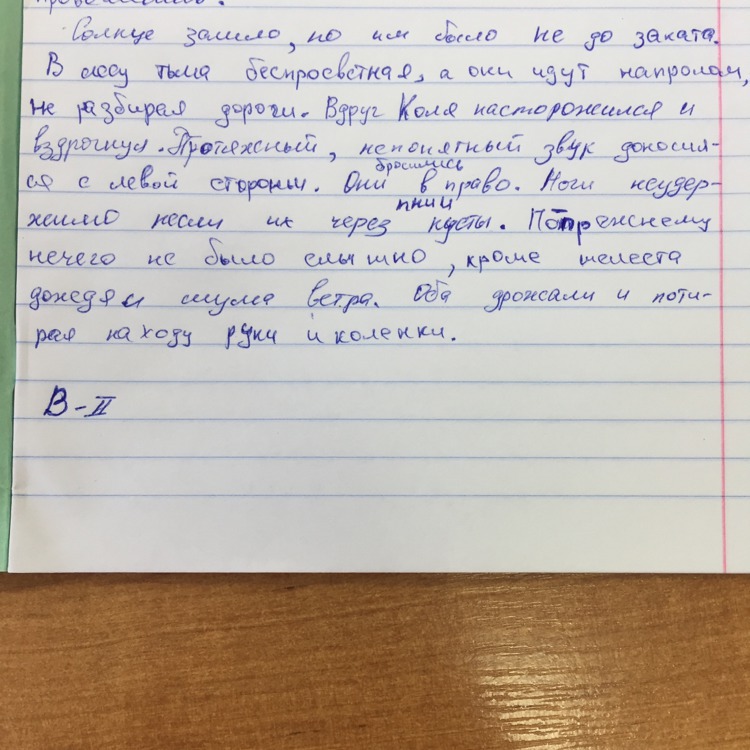 Солнце зашло, но им было не до заката.
В лесу тьма беспросветная, а они идут напролом,
не разбирая дороги. Вдруг Коля насторожился и
вздрогнул. Протяжный, непонятный звук доносил-
ся с левой стороны. Они бросились в право. Ноги неудер-
жимо несли их через пни и кусты. Попрежнему
нечего не было слышно, кроме шелеста
дождя и шума ветра. Оба дрожали и поти-
рая на ходу руки и коленки.
В-II